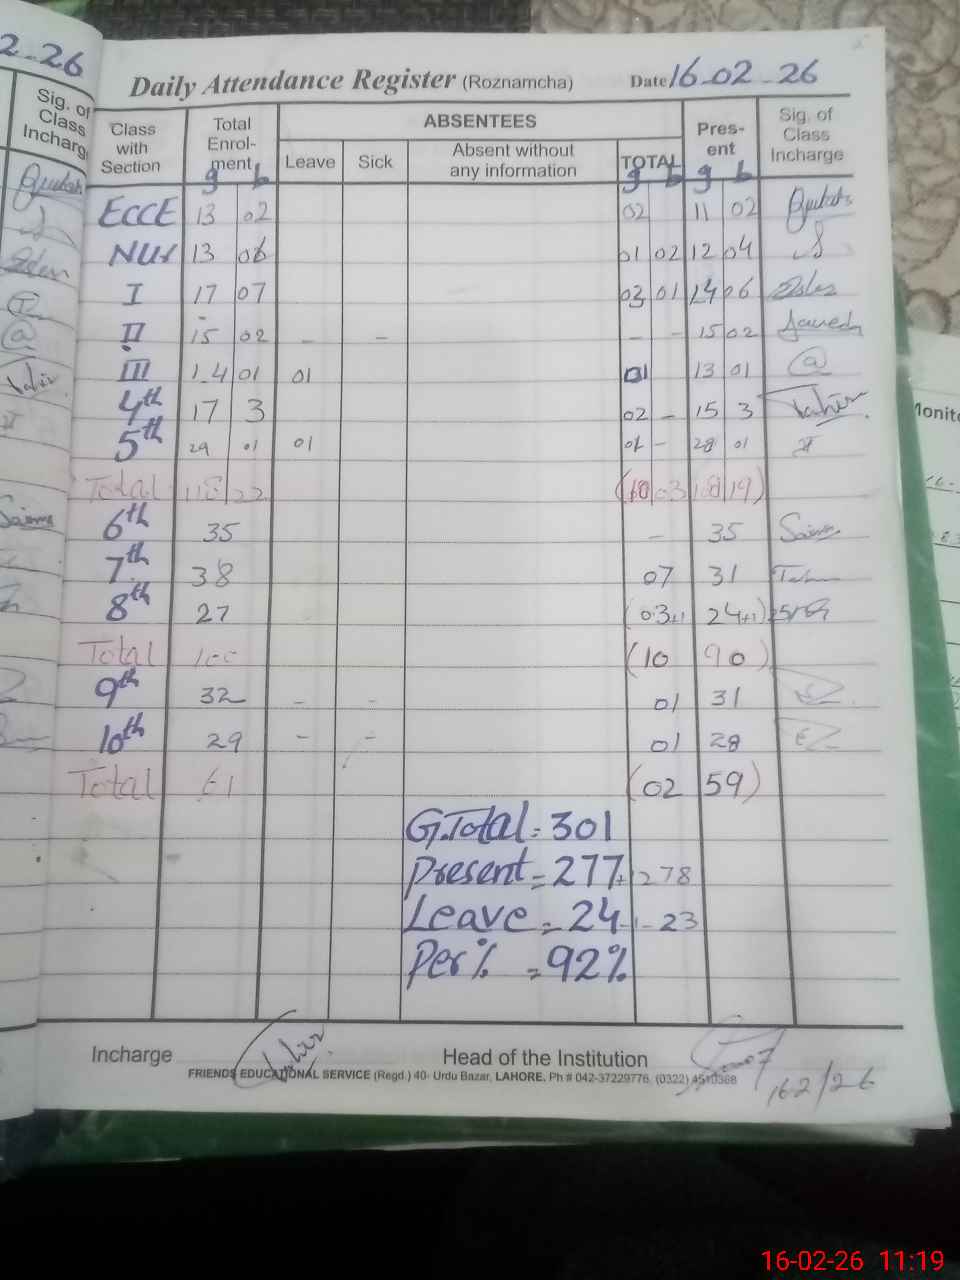 2-26
Daily Attendance Register (Roznamcha) Date 16-02-26
Sig. of Class Incharg
Class with Section Total Enrol-ment ABSENTEES Pres-ent Sig. of Class Incharge
Leave Sick Absent without any information TOTAL
g b g b g b
ECCE 13 02 02 11 02
NUr 13 06 01 02 12 04
I 17 07 03 01 14 06
II 15 02 - - - - 15 02
III 14 01 01 01 13 01
4th 17 3 02 - 15 3 Tahir
5th 29 01 01 01 - 28 01
Total 118 22 (10 03 108 19)
6th 35 - 35 Saima
7th 38 07 31
8th 27 (03+1 24+1)
Total 100 (10 90)
9th 32 - - 01 31
10th 29 - - 01 28
Total 61 (02 59)
G.Total = 301
Present = 277+ 278
Leave = 24-1-23
Per% = 92%
Incharge Tahir Head of the Institution
FRIENDS EDUCATIONAL SERVICE (Regd.) 40- Urdu Bazar, LAHORE. Ph # 042-37229776, (0322) 4510368
162/26
Monito
16-02-26 11:19